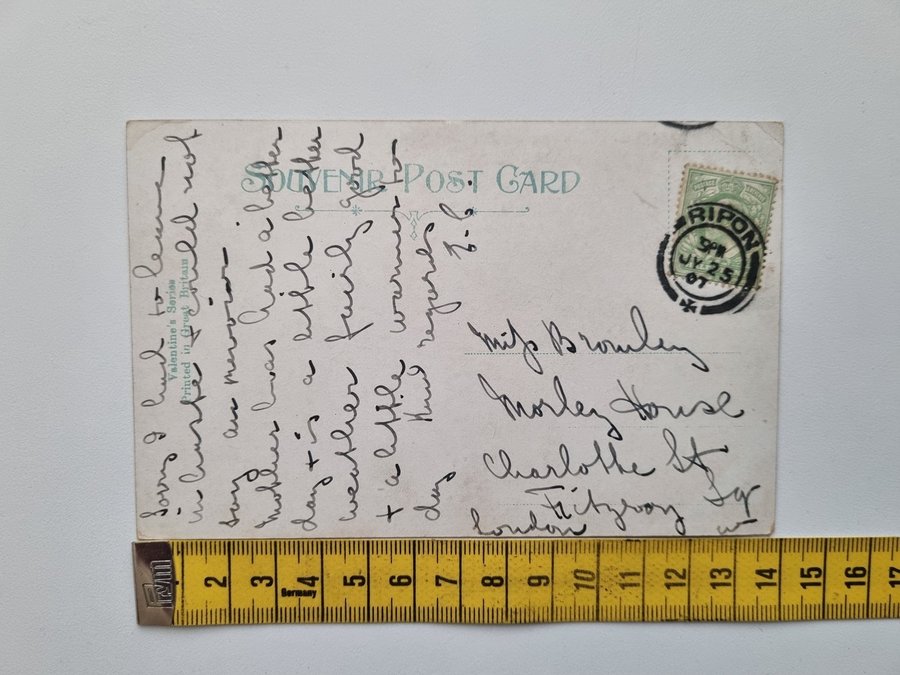 SOUVENIR POST CARD
Valentine's Series
Printed in Great Britain
RIPON
9PM
JY 25
07
Sorry I had to leave
in haste & could not
say au revoir
Mother has had a better
day & is a little better
weather fairly good
& a little warmer to
day Kind regards
Miss Bromley
Morley House
Charlotte St
Fitzroy Sq
London W
Prym
2 3 4 5 6 7 8 9 10 11 12 13 14 15 16 17
Germany